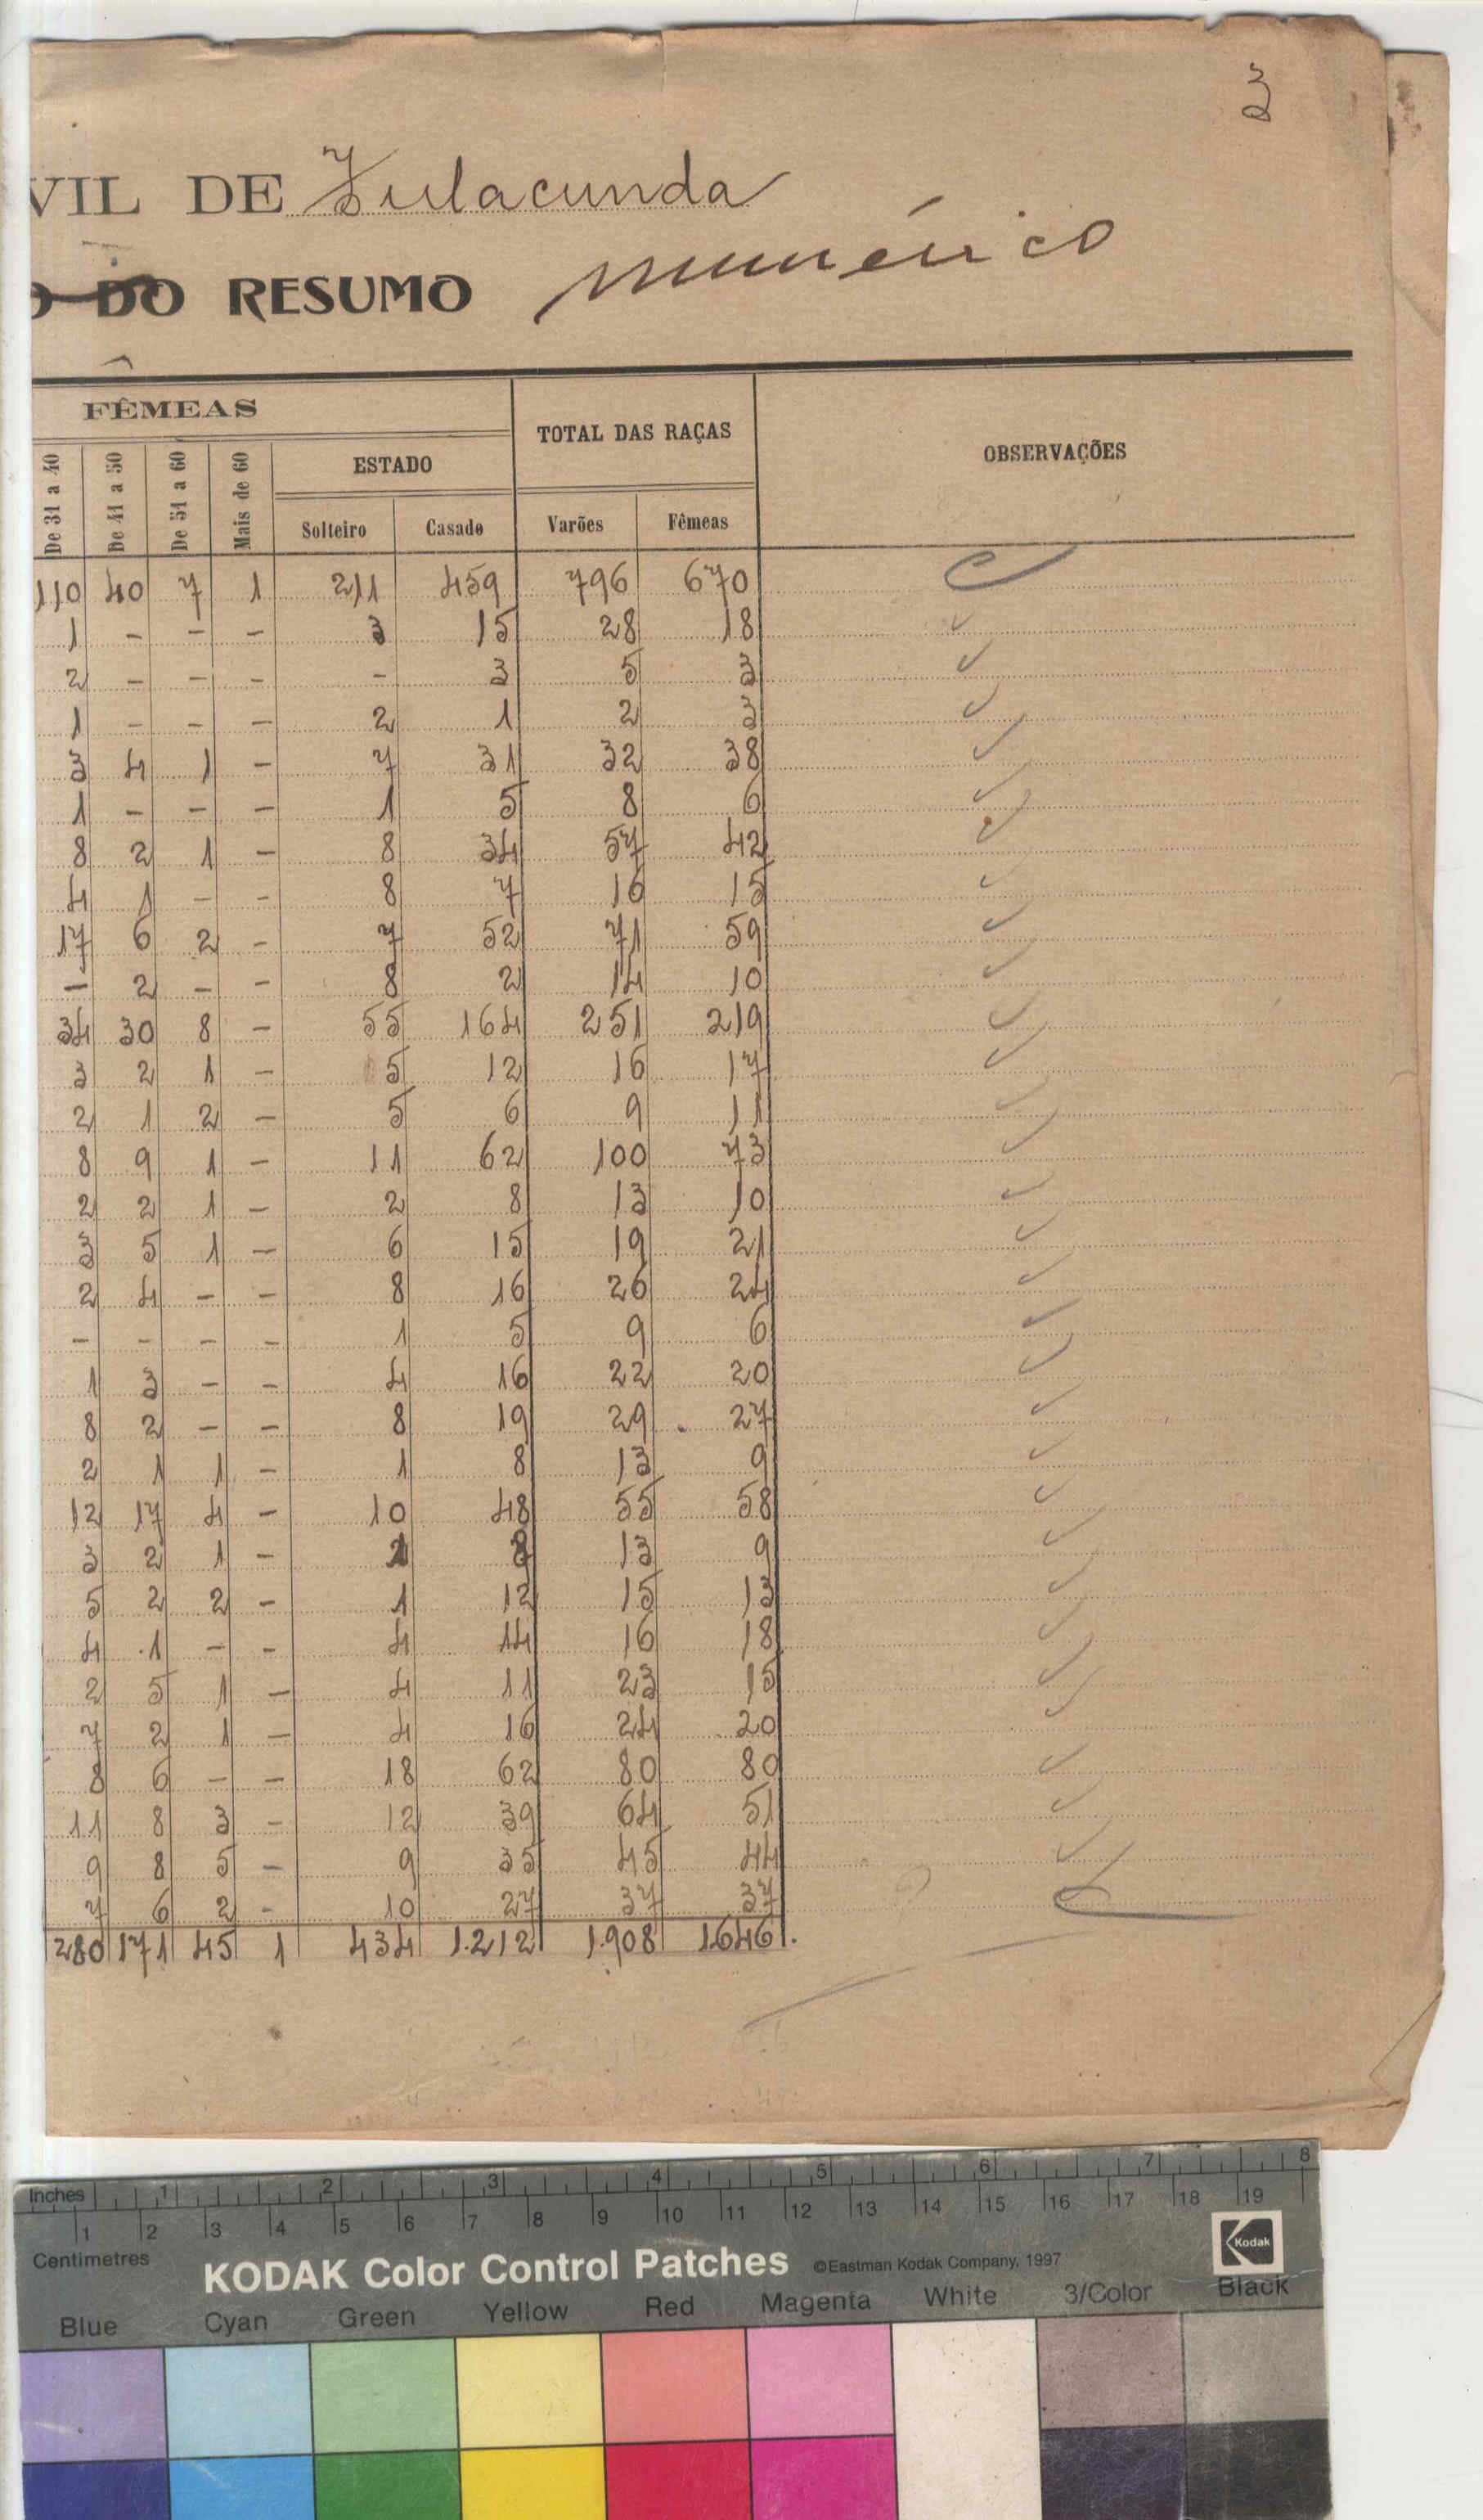 3
VIL DE Fulacunda
O DO RESUMO numérico
FÊMEAS
TOTAL DAS RAÇAS
OBSERVAÇÕES
De 31 a 40
De 41 a 50
De 51 a 60
Mais de 60
ESTADO
Solteiro Casado Varões Fêmeas
110 40 7 1 211 459 796 670
1 - - - 3 15 28 18
2 - - - - 3 5 3
1 - - - 2 1 2 3
3 4 1 - 7 31 32 38
1 - - - 1 5 8 6
8 2 1 - 8 34 57 42
4 1 - - 8 7 16 15
17 6 2 - 7 52 71 59
- 2 - - 8 2 14 10
34 30 8 - 55 164 251 219
3 2 1 - 5 12 16 17
2 1 2 - 5 6 9 11
8 9 1 - 11 62 100 73
2 2 1 - 2 8 13 10
3 5 1 - 6 15 19 21
2 4 - - 8 16 26 24
- - - - 1 5 9 6
1 3 - - 4 16 22 20
8 2 - - 8 19 29 27
2 1 1 - 1 8 13 9
12 17 4 - 10 48 55 58
3 2 1 - 13 9
5 2 2 - 1 12 15 13
4 1 - - 4 14 16 18
2 5 1 - 4 11 23 15
7 2 1 - 4 16 24 20
8 6 - - 18 62 80 80
11 8 3 - 12 39 64 51
9 8 5 - 9 35 45 44
7 6 2 - 10 27 37 37
280 171 45 1 434 1.212 1.908 1646.
Inches 1 2 3 4 5 6 7 8
1 2 3 4 5 6 7 8 9 10 11 12 13 14 15 16 17 18 19
Centimetres
KODAK Color Control Patches ©Eastman Kodak Company, 1997 Kodak
Blue Cyan Green Yellow Red Magenta White 3/Color Black